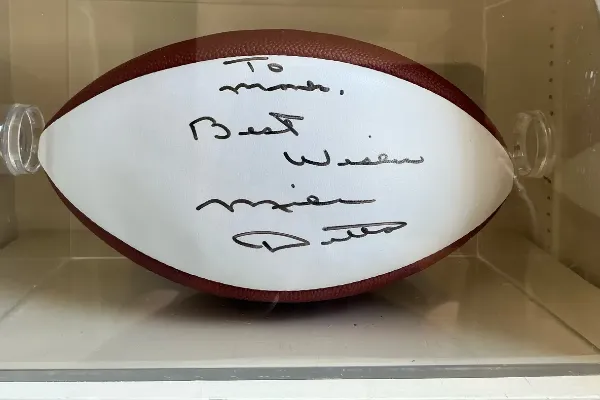 To
Best
Wishes
Mike
Ditka